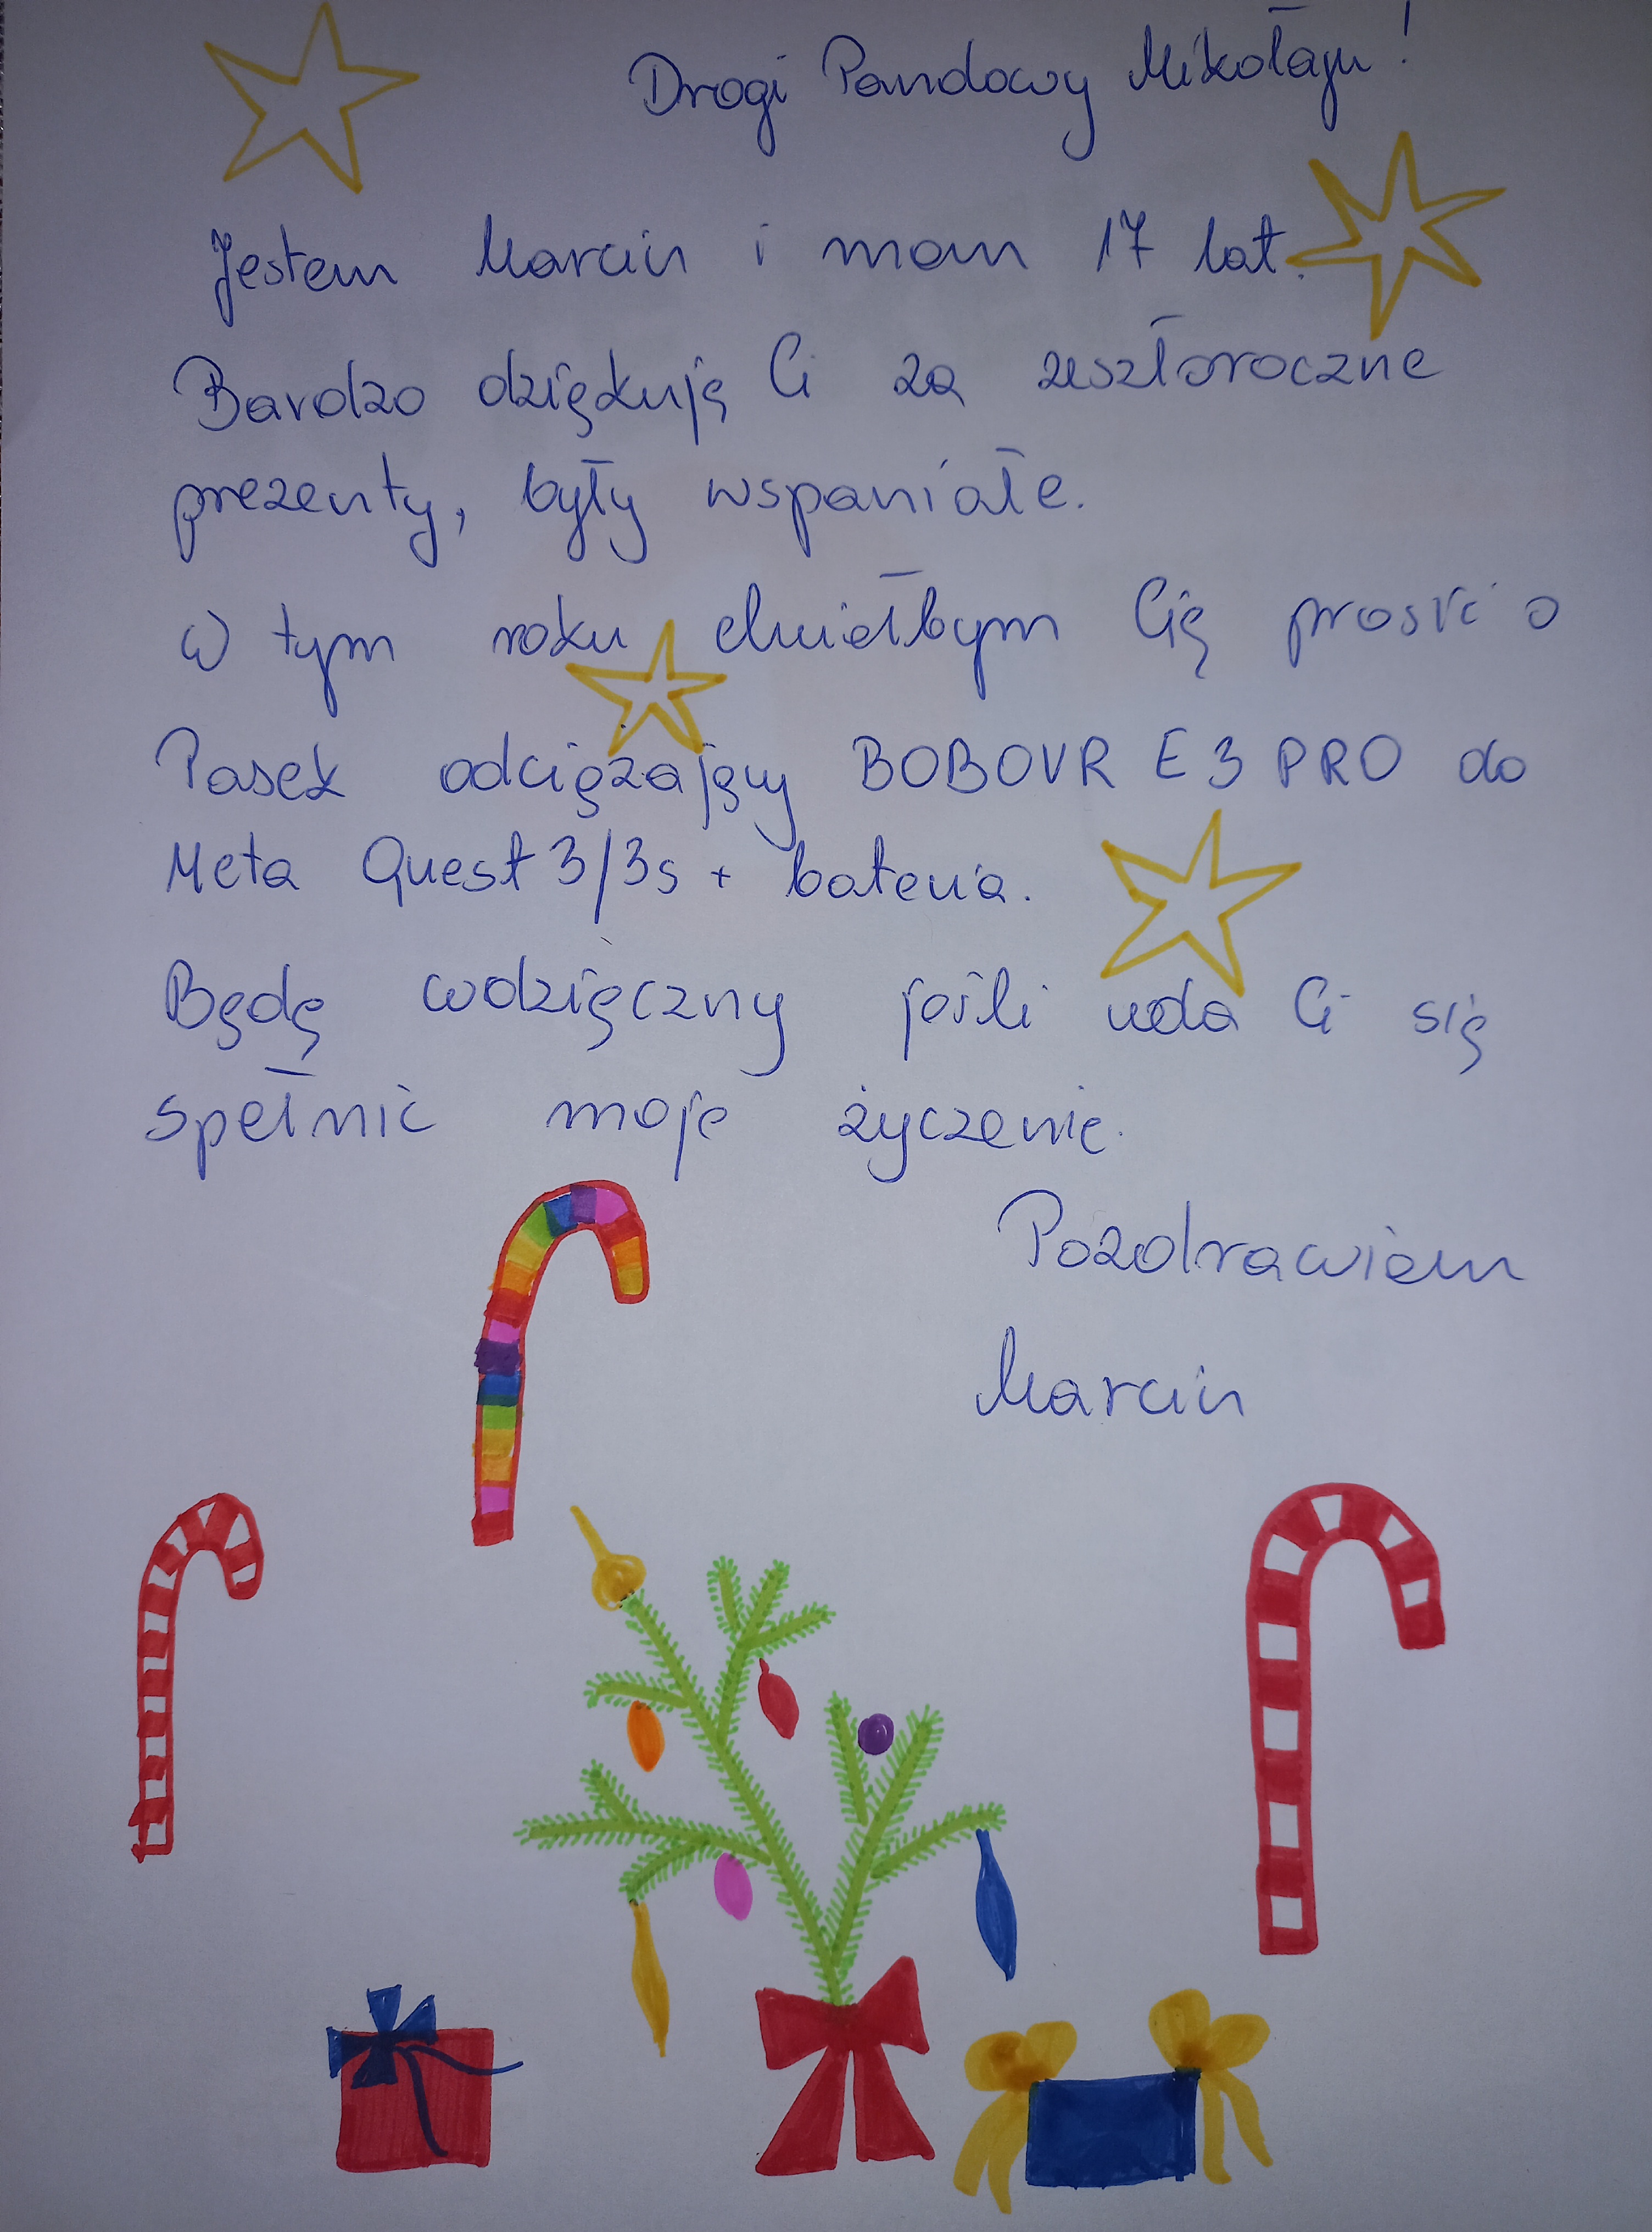 Drogi Pandowy Mikołaju!
Jestem Marcin i mam 17 lat.
Bardzo dziękuję Ci za zeszłoroczne
prezenty, były wspaniałe.
W tym roku chciałbym Cię prosić o
Pasek odciążający BOBOVR E3 PRO do
Meta Quest 3/3s + bateria.
Będę wdzięczny jeśli uda Ci się
spełnić moje życzenie.
Pozdrawiam
Marcin